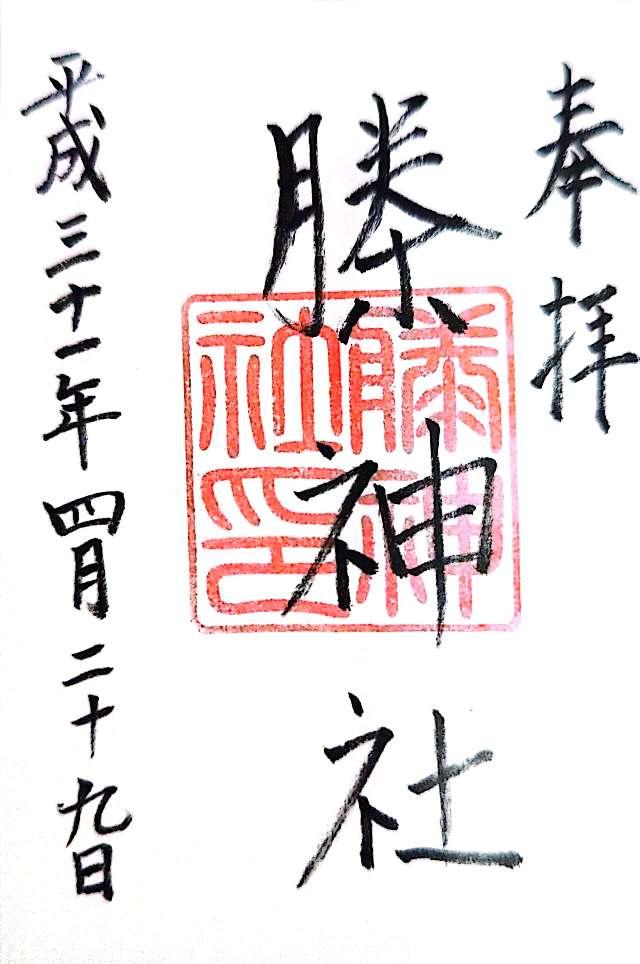 奉拝
榺神社
榺神
社印
平成三十一年四月二十九日